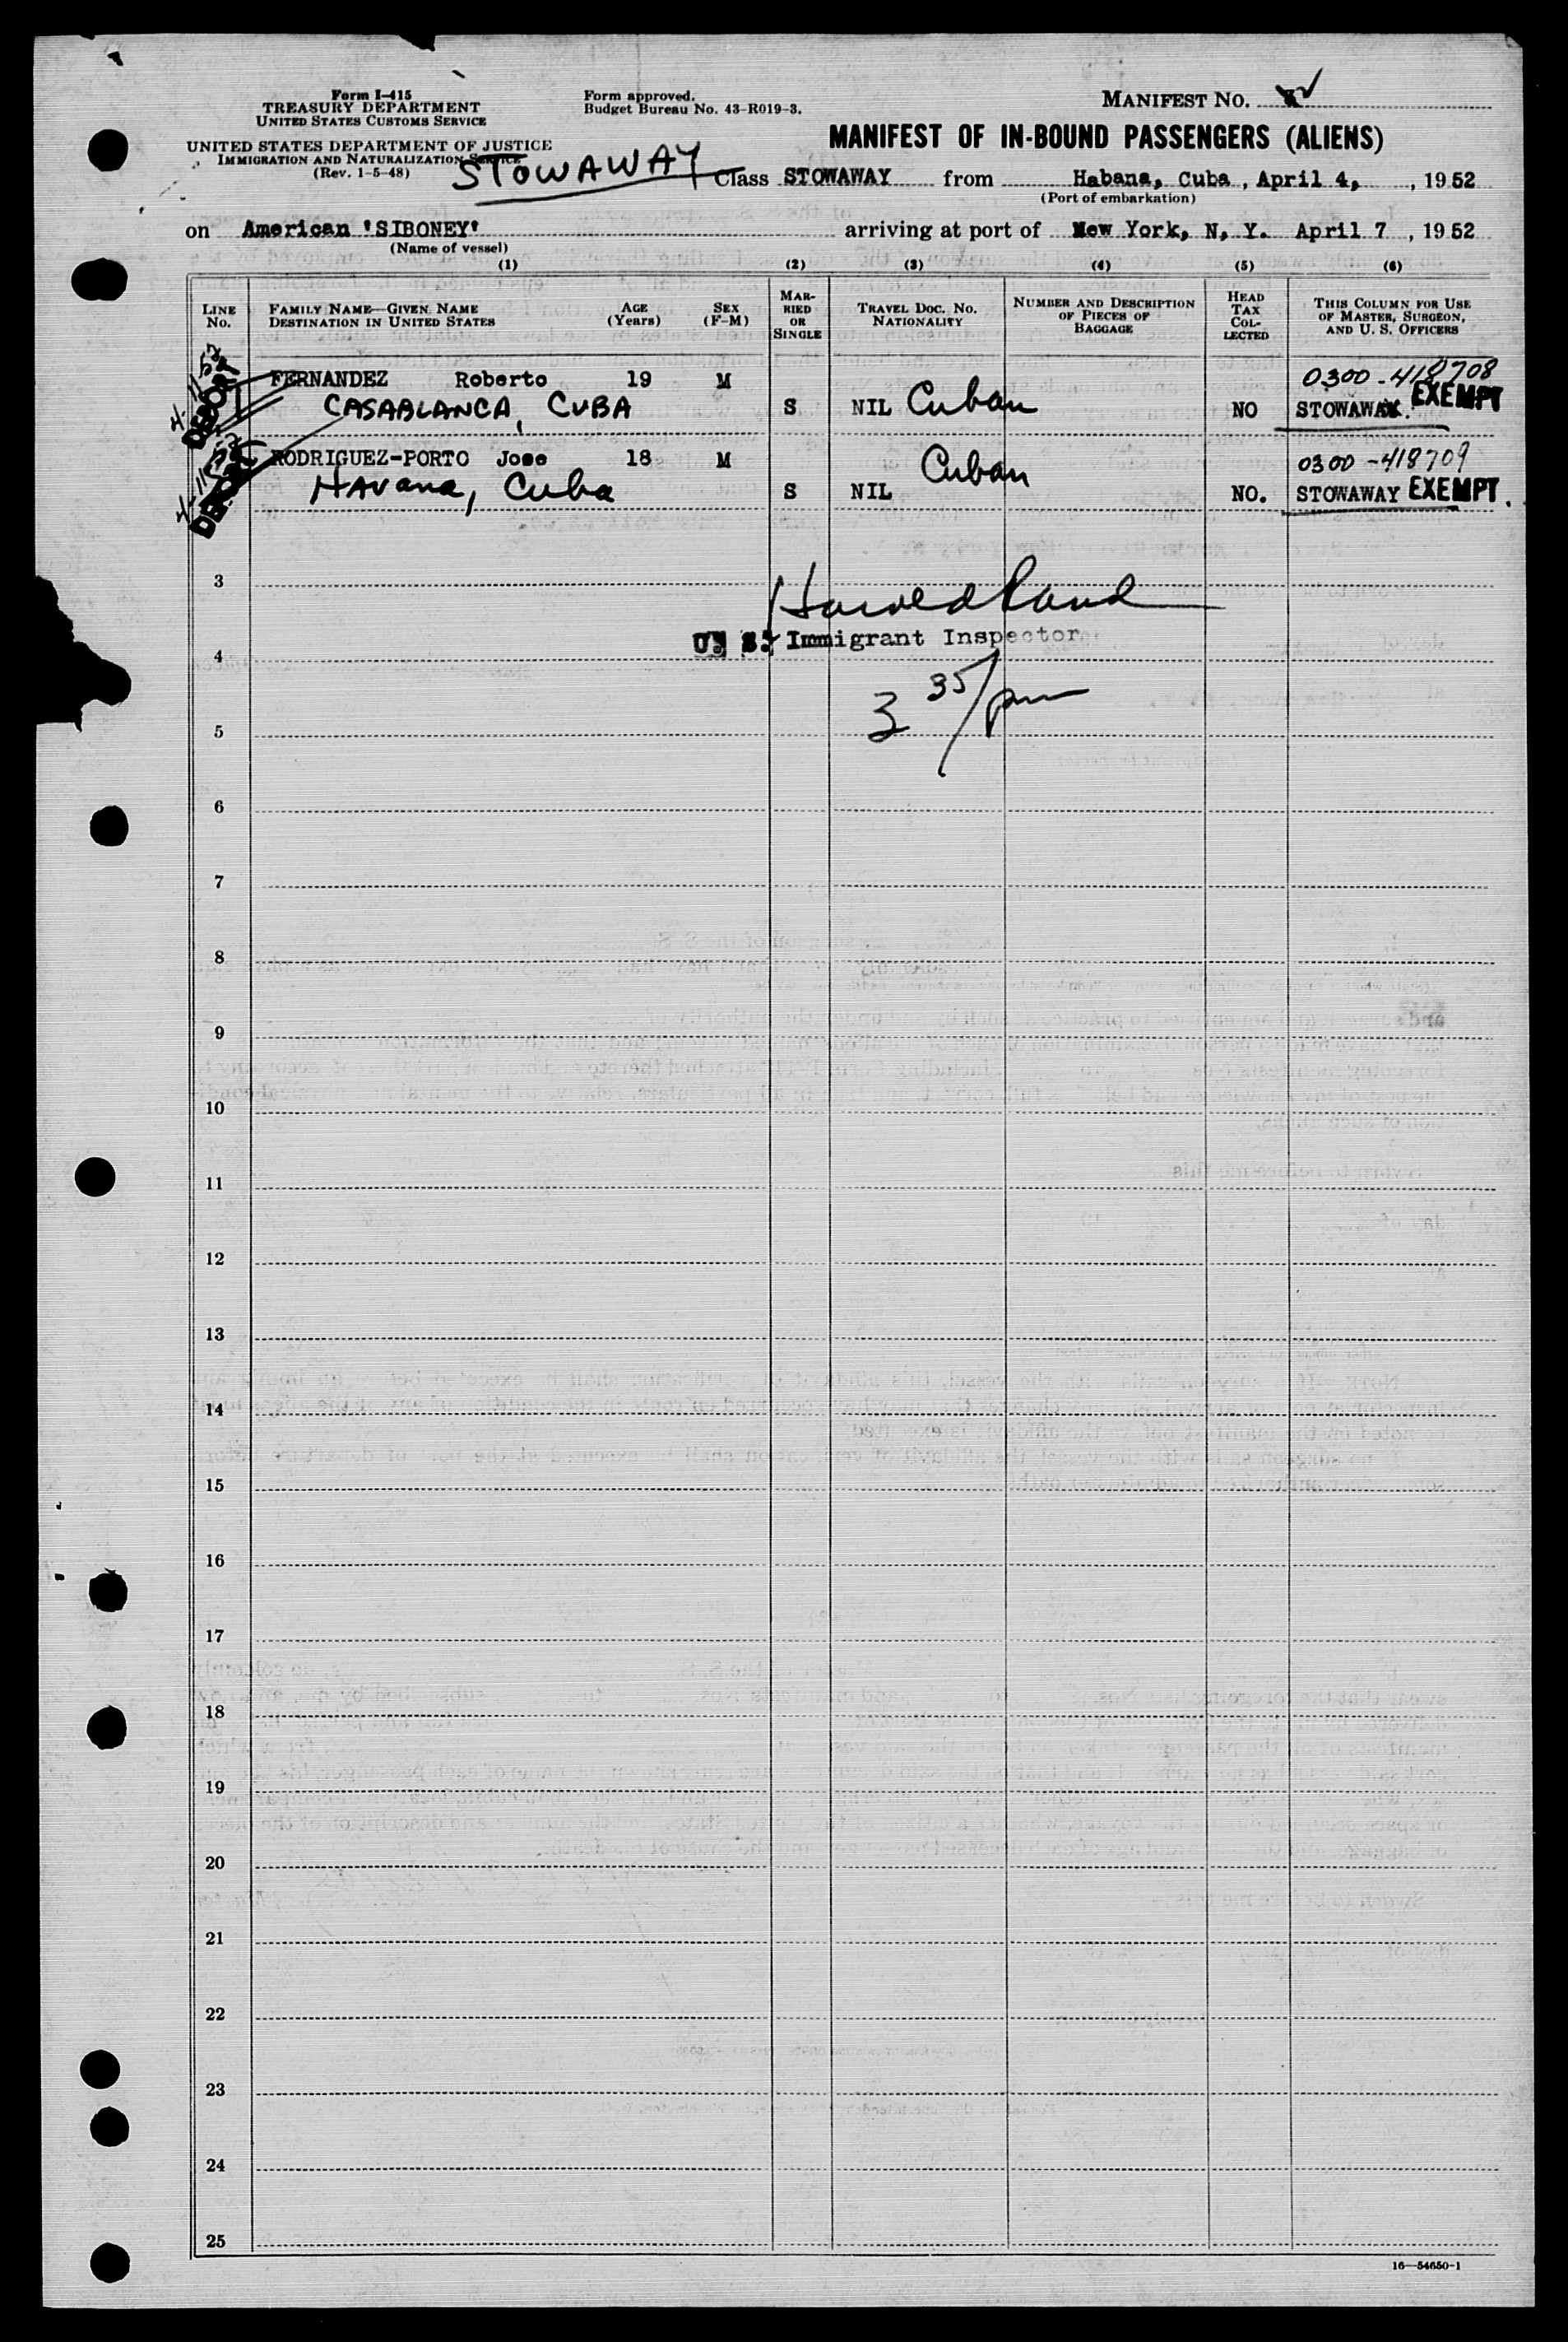 Form I-415
TREASURY DEPARTMENT
UNITED STATES CUSTOMS SERVICE
UNITED STATES DEPARTMENT OF JUSTICE
IMMIGRATION AND NATURALIZATION SERVICE
(Rev. 1-5-48)
Form approved.
Budget Bureau No. 43-R019-3.
MANIFEST NO.
MANIFEST OF IN-BOUND PASSENGERS (ALIENS)
STOWAWAY Class STOWAWAY from Habana, Cuba, April 4, , 1952
(Port of embarkation)
on American 'SIBONEY' arriving at port of New York, N. Y. April 7 , 1952
(Name of vessel)
(1) (2) (3) (4) (5) (6)
LINE No. FAMILY NAME—GIVEN NAME DESTINATION IN UNITED STATES AGE (Years) SEX (F-M) MARRIED OR SINGLE TRAVEL DOC. NO. NATIONALITY NUMBER AND DESCRIPTION OF PIECES OF BAGGAGE HEAD TAX COLLECTED THIS COLUMN FOR USE OF MASTER, SURGEON, AND U. S. OFFICERS
DEPORT
FERNANDEZ Roberto 19 M 0300-418708
CASABLANCA, CUBA S NIL Cuban NO STOWAWAY. EXEMPT
DEPORT
RODRIGUEZ-PORTO Jose 18 M Cuban 0300-418709
Havana, Cuba S NIL NO. STOWAWAY EXEMPT.
3
U. S. Immigrant Inspector
4
3 35/pm
5
6
7
8
9
10
11
12
13
14
15
16
17
18
19
20
21
22
23
24
25
16—54650-1